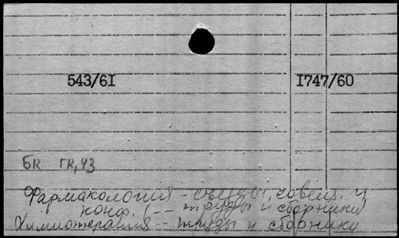 543/61 I747/60
БК ГК,ЧЗ
Фармакология - съезды, совещ. и
конф. -- труды и сборники
Химиотерапия -- труды и сборники